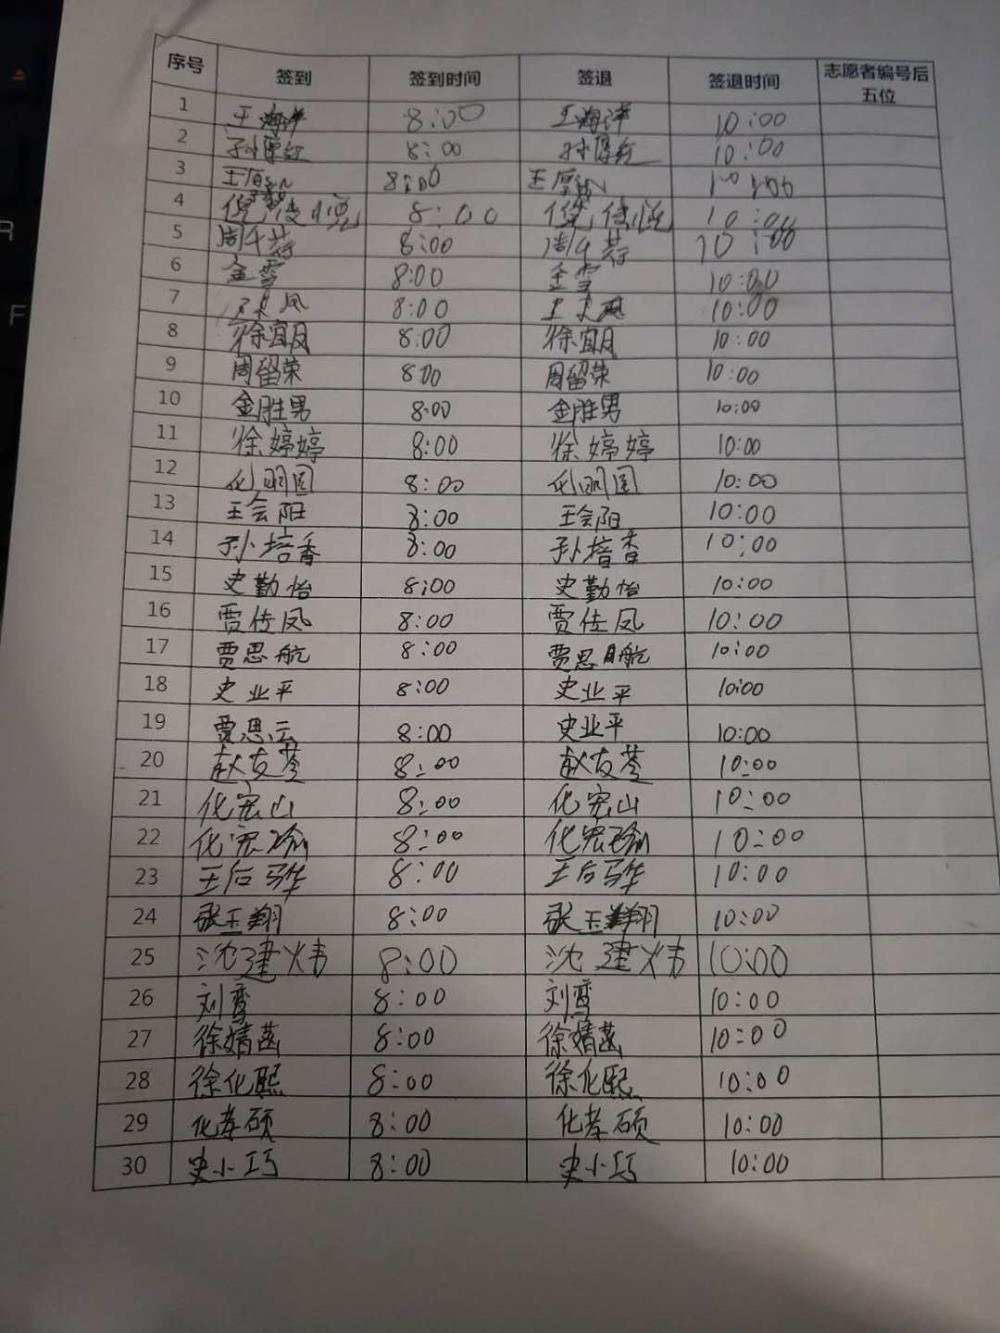 序号 签到 签到时间 签退 签退时间 志愿者编号后五位
1 王海洋 8:00 王海洋 10:00
2 孙厚红 8:00 孙厚红 10:00
3 8:00 10:00
4 8:00 10:00
5 8:00 10:00
6 金雪 8:00 金雪 10:00
7 8:00 10:00
8 徐宜月 8:00 徐宜月 10:00
9 周留荣 8:00 周留荣 10:00
10 金胜男 8:00 金胜男 10:00
11 徐婷婷 8:00 徐婷婷 10:00
12 化明国 8:00 化明国 10:00
13 王会阳 8:00 王会阳 10:00
14 孙培香 8:00 孙培香 10:00
15 史勤怡 8:00 史勤怡 10:00
16 贾传凤 8:00 贾传凤 10:00
17 贾思航 8:00 贾思航 10:00
18 史业平 8:00 史业平 10:00
19 贾思云 8:00 史业平 10:00
20 赵友苓 8:00 赵友苓 10:00
21 化宪山 8:00 化宪山 10:00
22 化宪瑜 8:00 化宪瑜 10:00
23 王后华 8:00 王后华 10:00
24 张玉翔 8:00 张玉翔 10:00
25 沈建炜 8:00 沈建炜 10:00
26 刘鸾 8:00 刘鸾 10:00
27 徐婧菡 8:00 徐婧菡 10:00
28 徐化熙 8:00 徐化熙 10:00
29 化孝硕 8:00 化孝硕 10:00
30 史小巧 8:00 史小巧 10:00